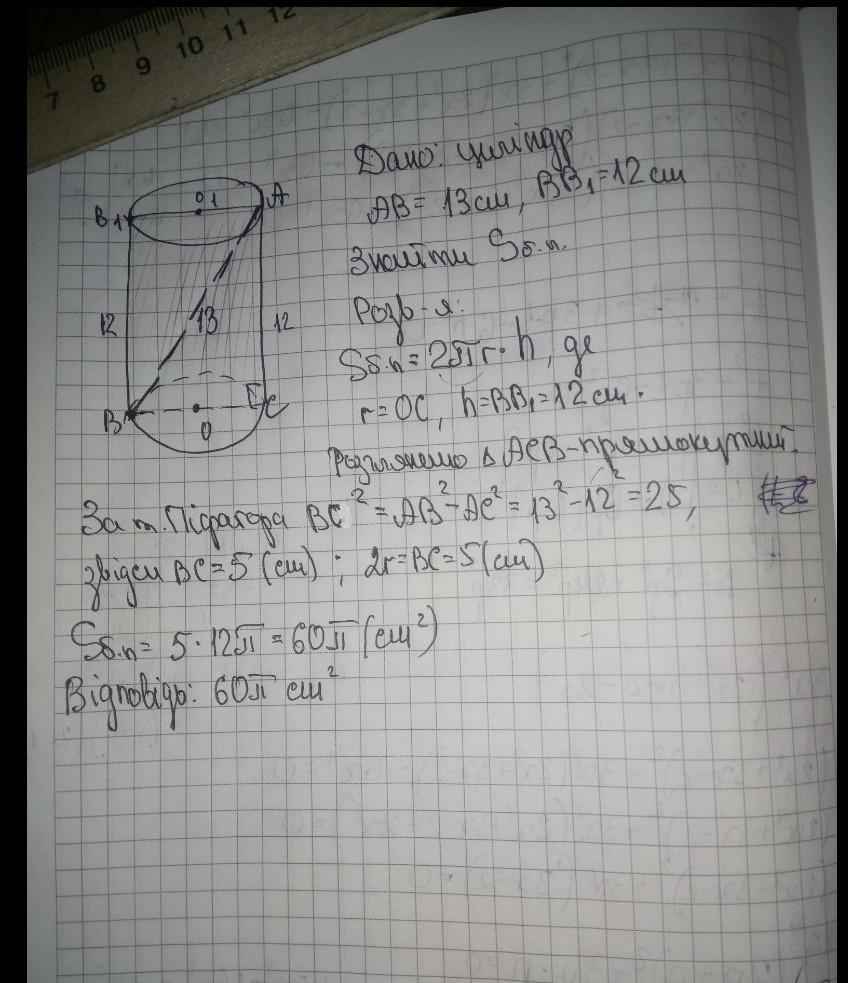 7 8 9 10 11 12
Дано: циліндр
AB = 13 см, BB₁ = 12 см
Знайти Sб.п.
Розв-я:
Sб.п = 2πr · h, де
r = OC, h = BB₁ = 12 см.
Розглянемо Δ ACB - прямокутний.
За т. Піфагора BC² = AB² - AC² = 13² - 12² = 25,
звідси BC = 5 (см) ; 2r = BC = 5 (см)
Sб.п = 5 · 12π = 60π (см²)
Відповідь: 60π см²
B₁ O₁ A
12 13 12
B O C